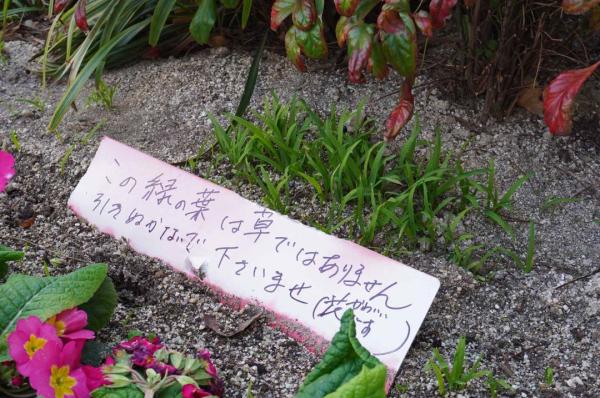 この緑の葉は草ではありません
引えぬかないで下さいませ(花がい
です)